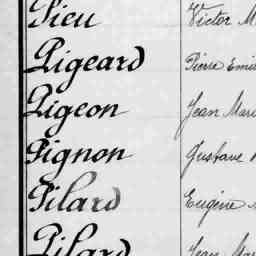 Pieu Victor M
Pigeard Pierre Emil
Pigeon Jean Mari
Pignon Gustave
Pilard Eugène
Pilard Jean Mar